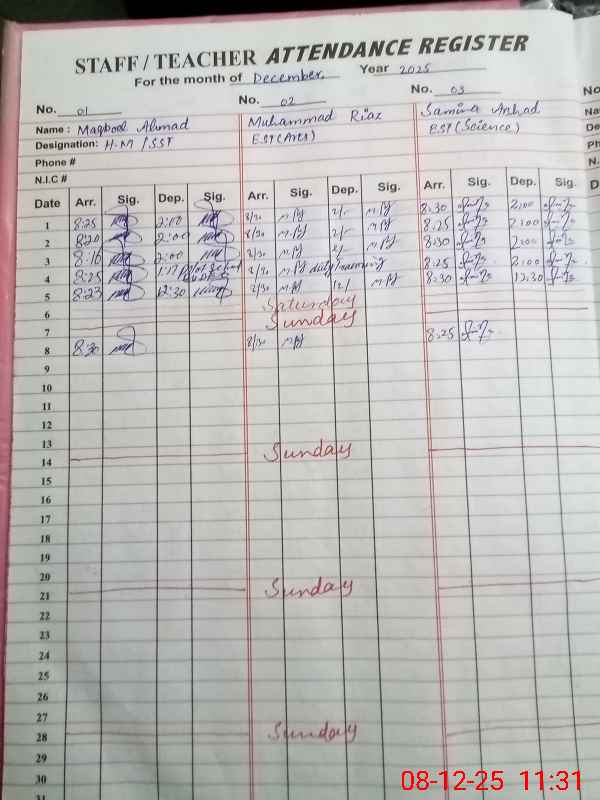 STAFF / TEACHER ATTENDANCE REGISTER
For the month of December Year 2025
No. 01 No. 02 No. 03 No
Name : Maqbool Ahmad Muhammad Riaz Samina Arshad Na
Designation: H.M / SST EST (Arts) EST (Science) De
Phone # Ph
N.I.C # N.
Date Arr. Sig. Dep. Sig. Arr. Sig. Dep. Sig. Arr. Sig. Dep. Sig. D
1 8:25 2:00 8/30 2/- 8:30 2:00
2 8:20 2:00 8/30 2/- 8:25 2:00
3 8:16 2:00 8/30 2/- 8:30 2:00
4 8:25 8/30 8:25 2:00
5 8:25 12:30 8/30 12/ 8:30 12:30
6 Saturday
7 Sunday
8 8:30 8/30 8:25
9
10
11
12
13
14 Sunday
15
16
17
18
19
20
21 Sunday
22
23
24
25
26
27
28 Sunday
29
30
31
08-12-25 11:31